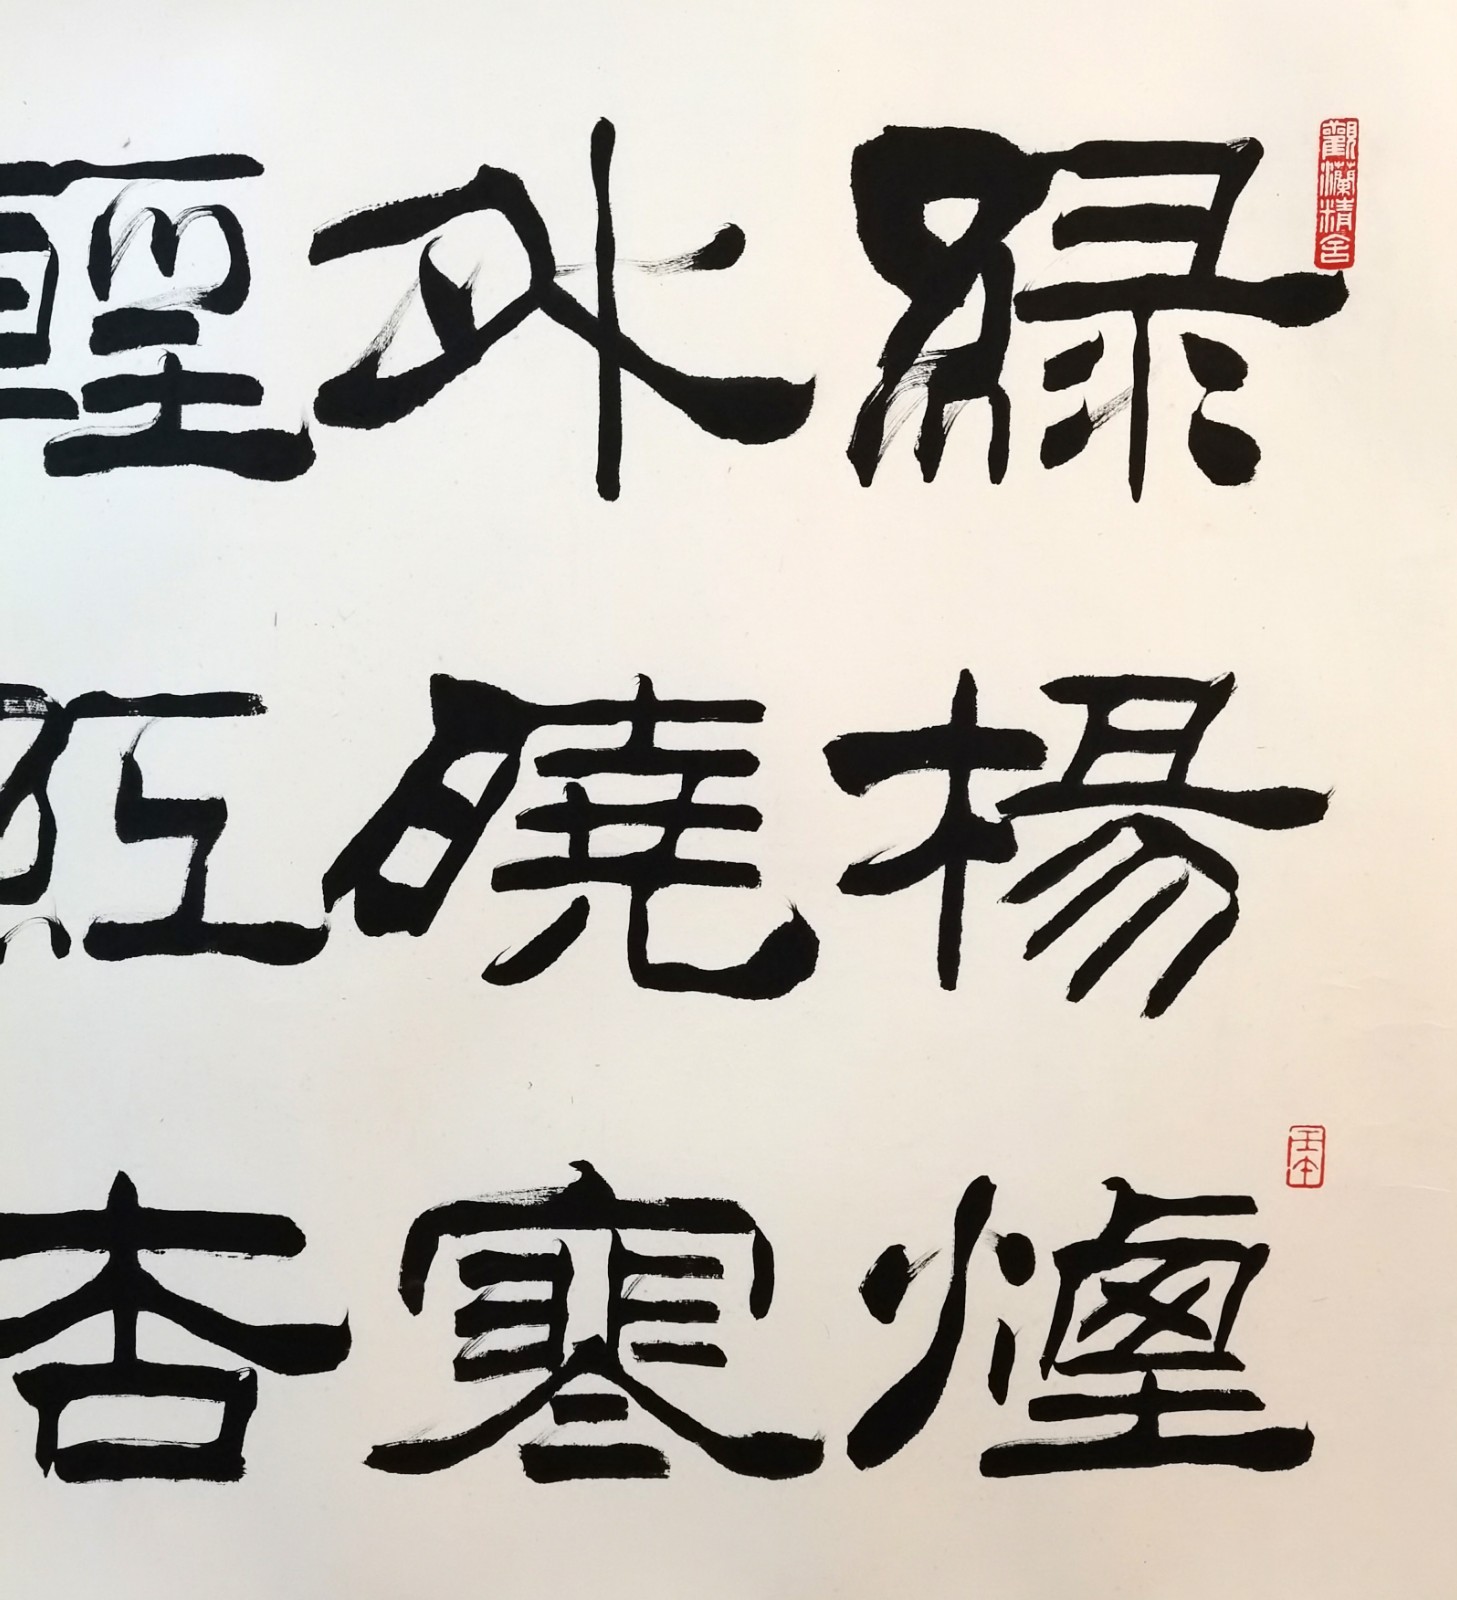 觀瀾精舍
緑楊煙
外曉寒
輕紅杏